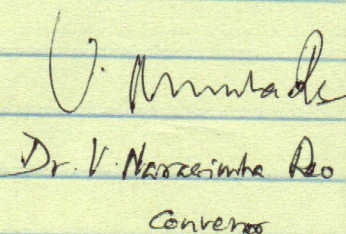 Dr. V. Narasimha Rao
Convenor